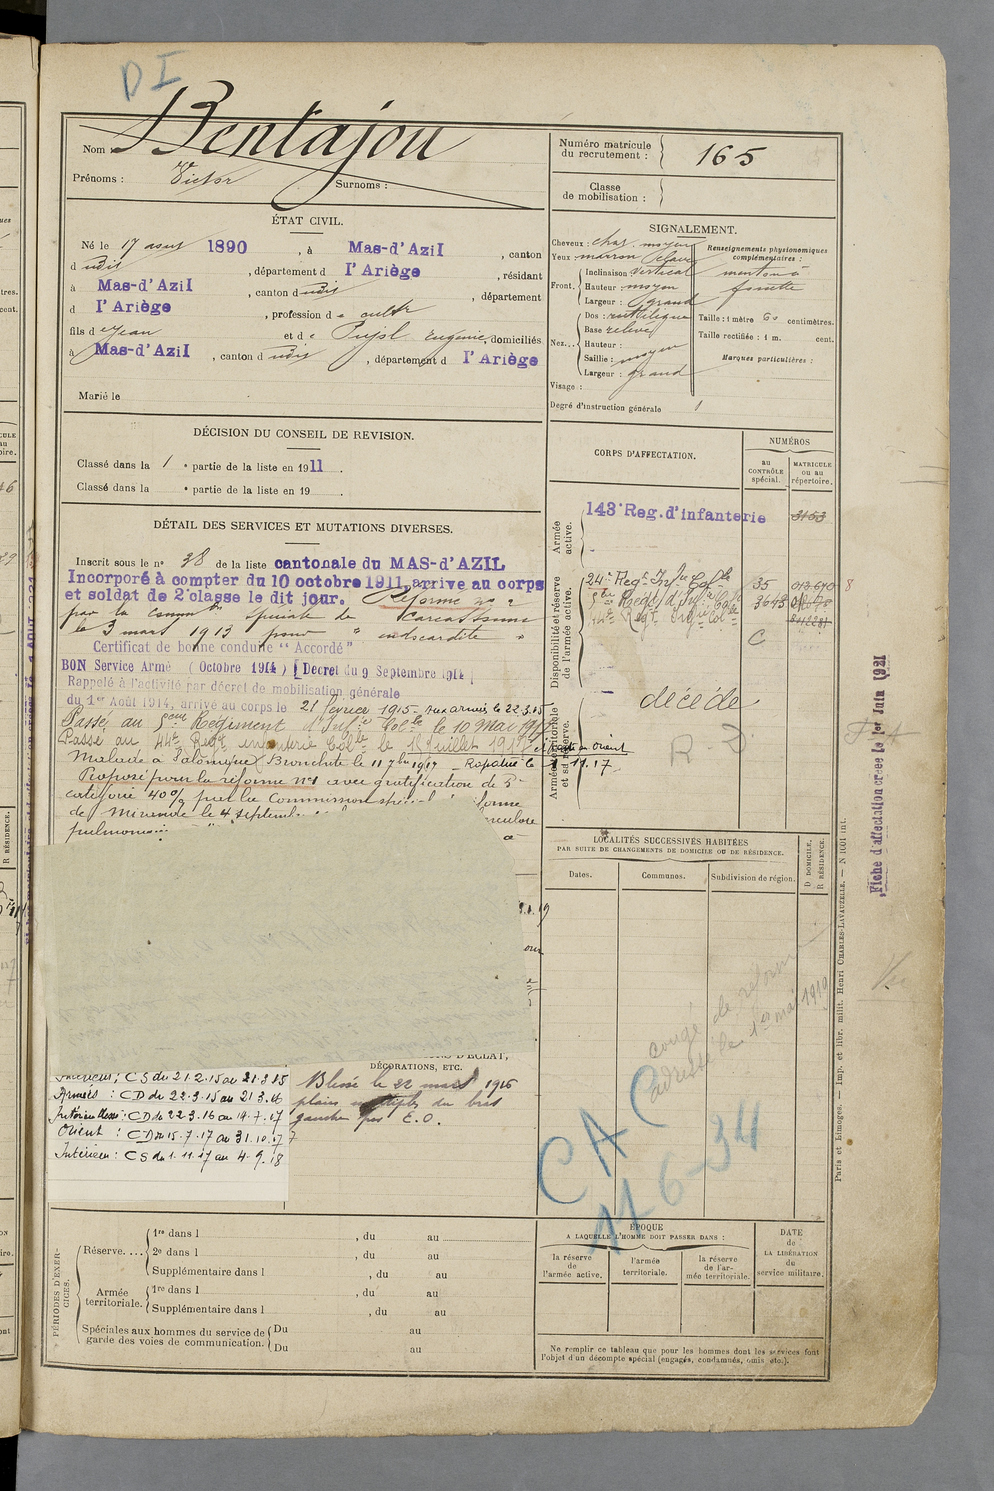 D I
Nom : Bentajou
Prénoms : Victor Surnoms :
Numéro matricule du recrutement : 165
Classe de mobilisation :
ÉTAT CIVIL.
Né le 17 aout 1890, à Mas-d'Azil, canton
d udit, département d l'Ariège, résidant
à Mas-d'Azil, canton dudit, département
d l'Ariège, profession d e cultr
fils d e Jean et d e Pujol Eugénie domiciliés
à Mas-d'Azil, canton d udit, département d l'Ariège
Marié le
SIGNALEMENT.
Cheveux : chat. moyen
Yeux marron clair
Front. Inclinaison vertical
Hauteur moyen
Largeur : grand
Nez... Dos : rectiligne
Base relevé
Hauteur :
Saillie : moyen
Largeur : grand
Visage :
Degré d'instruction générale 1
Renseignements physionomiques complémentaires :
menton à
fossette
Taille : 1 mètre 60 centimètres.
Taille rectifiée : 1 m. cent.
Marques particulières :
DÉCISION DU CONSEIL DE REVISION.
Classé dans la 1 e partie de la liste en 1911.
Classé dans la e partie de la liste en 19
DÉTAIL DES SERVICES ET MUTATIONS DIVERSES.
Inscrit sous le n° 38 de la liste cantonale du MAS-d'AZIL
Incorporé à compter du 10 octobre 1911, arrive au corps
et soldat de 2e classe le dit jour. Réformé no 2
par la Common spéciale de Carcassonne
le 3 mars 1913 pour "endocardite"
Certificat de bonne conduite "Accordé"
BON Service Armé (Octobre 1914) [Decret du 9 Septembre 1914]
Rappelé à l'activité par décret de mobilisation générale
du 1er Août 1914, arrivé au corps le 21 février 1915 - aux armées le 22.3.15
Passé au 5eme Régiment d'Infie Colle le 10 Mai
Passé au 44e Regt infanterie Colle le 1 Juillet en Orient
Malade à Salonique Bronchite le 11 7bre 1917 - Rapatrié le 1-11.17
Proposé pour la réforme N°1 avec gratification de 5e
catégorie 40% par la Commission spéciale réforme
de Mirande le 4 septemb culose
pulmonaire
CORPS D'AFFECTATION.
NUMÉROS
au CONTRÔLE spécial.
MATRICULE ou au répertoire.
Armée active.
143e Reg. d'infanterie 3153
Disponibilité et réserve de l'armée active.
24e Regt Infie Colle 35
5e Regt d'Infie Colle 3643
44e Regt Infie Colle
C
Armée territoriale et sa réserve.
décédé
R-D
Fiche d'affectation créée le 1er Juin 1921
LOCALITÉS SUCCESSIVES HABITÉES
PAR SUITE DE CHANGEMENTS DE DOMICILE OU DE RÉSIDENCE.
Dates. Communes. Subdivision de région. D DOMICILE. R RÉSIDENCE.
congé de réforme
adressé le 1er mai 1919
CAC
11-6-34
D'ÉCLAT,
DÉCORATIONS, ETC.
Blessé le 22 mars 1916
plaies multiples du bras
gauche par E.O.
Intérieur : CS du 21.2.15 au 21.3.15
Armées : CD du 22.3.15 au 21.3.16
Intérieur blessé : CD du 22.3.16 au 14.7.17
Orient : CD du 15.7.17 au 31.10.17
Intérieur : CS du 1.11.17 au 4.9.18
PÉRIODES D'EXERCICES.
Réserve.... 1re dans l , du au
2e dans l , du au
Supplémentaire dans l , du au
Armée territoriale. 1re dans l , du au
Supplémentaire dans l , du au
Spéciales aux hommes du service de garde des voies de communication. Du au
Du au
ÉPOQUE
A LAQUELLE L'HOMME DOIT PASSER DANS :
la réserve de l'armée active.
l'armée territoriale.
la réserve de l'armée territoriale.
DATE de LA LIBÉRATION du service militaire.
Ne remplir ce tableau que pour les hommes dont les services font l'objet d'un décompte spécial (engagés, condamnés, omis etc.).
Paris et Limoges. — Imp. et libr. milit. Henri CHARLES-LAVAUZELLE. — N 1001 int.